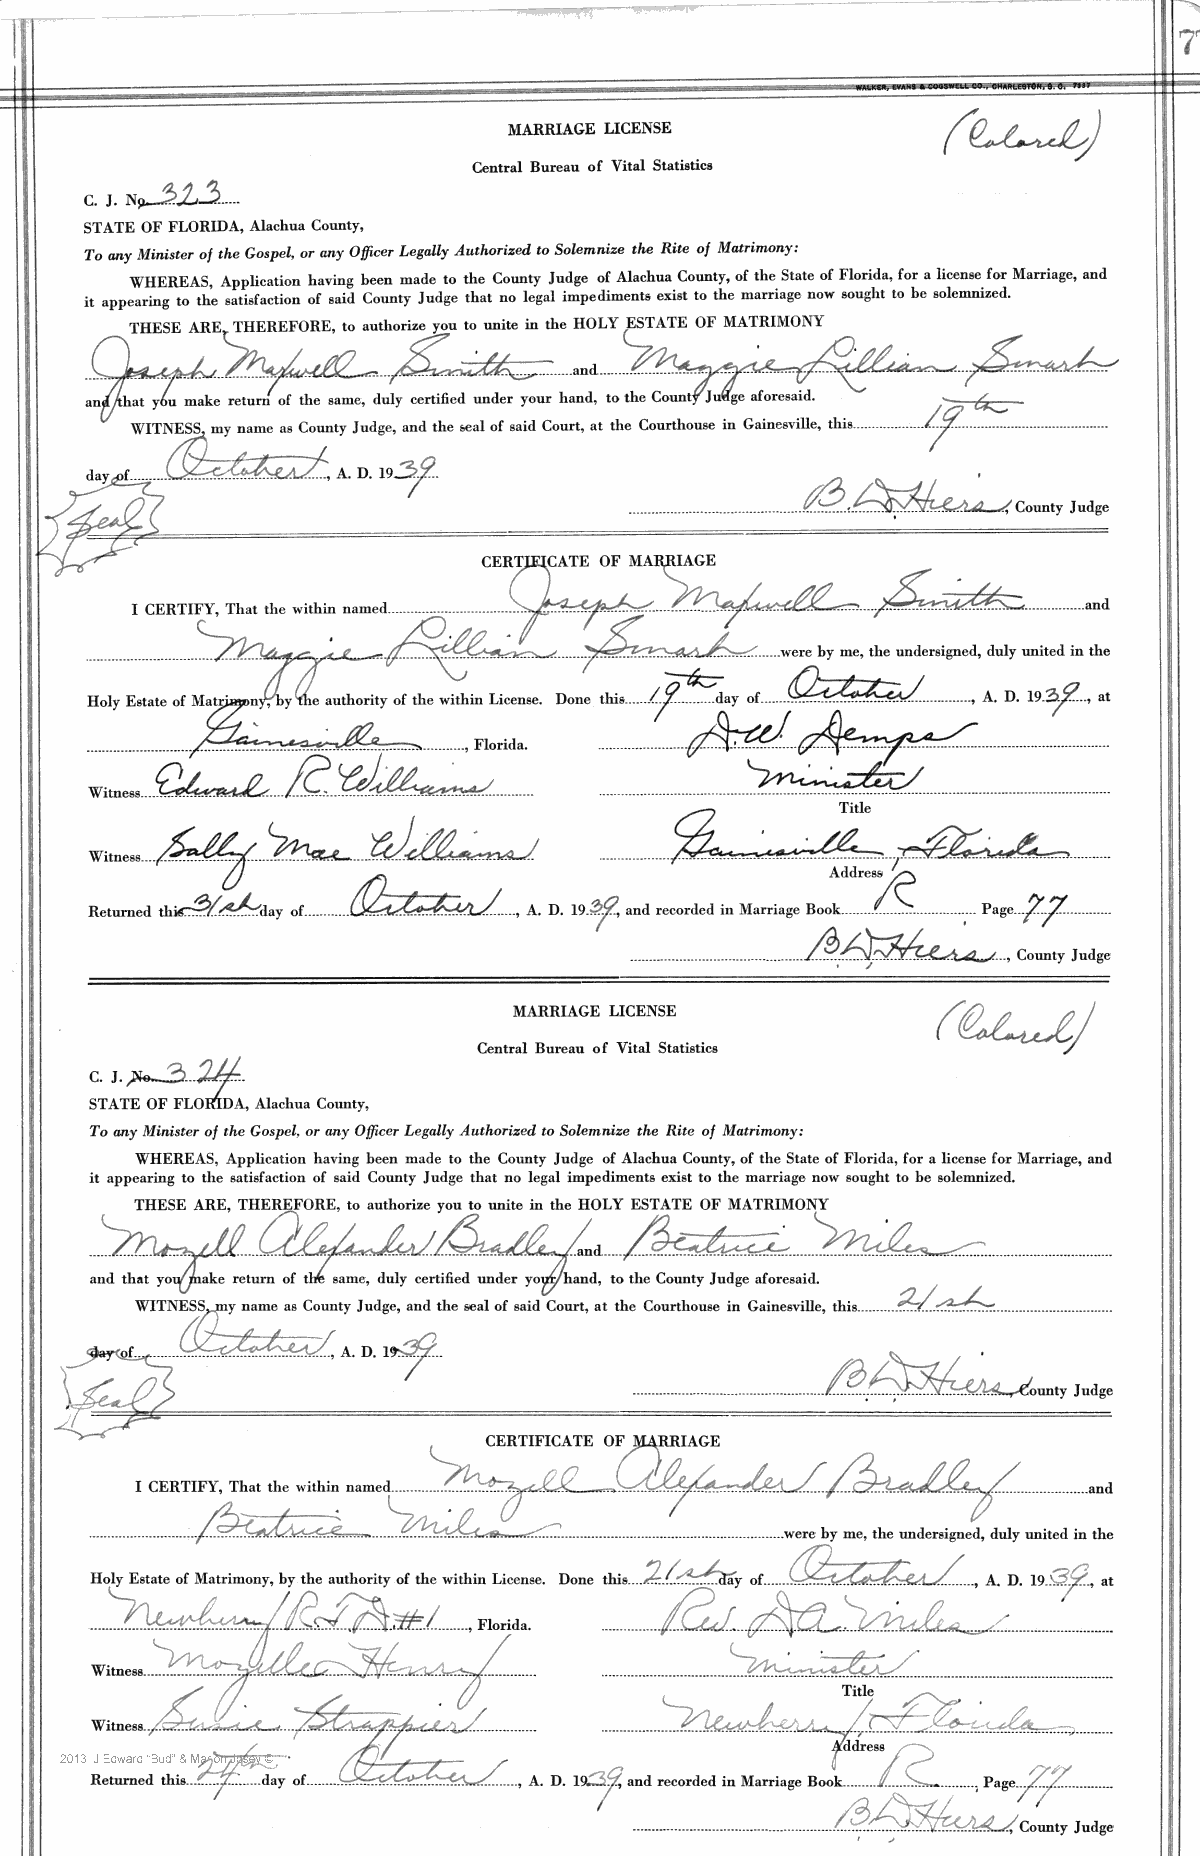 7
WALKER, EVANS & COGSWELL CO., CHARLESTON, S. C. 7337
MARRIAGE LICENSE
(Colored)
Central Bureau of Vital Statistics
C. J. No. 323
STATE OF FLORIDA, Alachua County,
To any Minister of the Gospel, or any Officer Legally Authorized to Solemnize the Rite of Matrimony:
WHEREAS, Application having been made to the County Judge of Alachua County, of the State of Florida, for a license for Marriage, and
it appearing to the satisfaction of said County Judge that no legal impediments exist to the marriage now sought to be solemnized.
THESE ARE, THEREFORE, to authorize you to unite in the HOLY ESTATE OF MATRIMONY
Joseph Maxwell Smith and Maggie Lillian Smash
and that you make return of the same, duly certified under your hand, to the County Judge aforesaid.
WITNESS, my name as County Judge, and the seal of said Court, at the Courthouse in Gainesville, this 19th
day of October, A. D. 1939
B. D. Hiers, County Judge
Seal
CERTIFICATE OF MARRIAGE
I CERTIFY, That the within named Joseph Maxwell Smith and
Maggie Lillian Smash were by me, the undersigned, duly united in the
Holy Estate of Matrimony, by the authority of the within License. Done this 19th day of October, A. D. 1939, at
Gainesville, Florida. D. W. Demps
Witness Edward R. Williams Minister
Title
Witness Sally Mae Williams Gainesville, Florida
Address
Returned this 31st day of October, A. D. 1939, and recorded in Marriage Book R Page 77
B. D. Hiers, County Judge
MARRIAGE LICENSE
(Colored)
Central Bureau of Vital Statistics
C. J. No. 324
STATE OF FLORIDA, Alachua County,
To any Minister of the Gospel, or any Officer Legally Authorized to Solemnize the Rite of Matrimony:
WHEREAS, Application having been made to the County Judge of Alachua County, of the State of Florida, for a license for Marriage, and
it appearing to the satisfaction of said County Judge that no legal impediments exist to the marriage now sought to be solemnized.
THESE ARE, THEREFORE, to authorize you to unite in the HOLY ESTATE OF MATRIMONY
Mozell Alexander Bradley and Beatrice Miles
and that you make return of the same, duly certified under your hand, to the County Judge aforesaid.
WITNESS, my name as County Judge, and the seal of said Court, at the Courthouse in Gainesville, this 21st
day of October, A. D. 1939
B. D. Hiers, County Judge
Seal
CERTIFICATE OF MARRIAGE
I CERTIFY, That the within named Mozell Alexander Bradley and
Beatrice Miles were by me, the undersigned, duly united in the
Holy Estate of Matrimony, by the authority of the within License. Done this 21st day of October, A. D. 1939, at
Newberry R.F.D. #1, Florida. Rev. D. A. Miles
Witness Mozelle Henry Minister
Title
Witness Susie Strappier Newberry, Florida
Address
2013 J Edward "Bud" &
Returned this 24th day of October, A. D. 1939, and recorded in Marriage Book R. Page 77
B. D. Hiers, County Judge